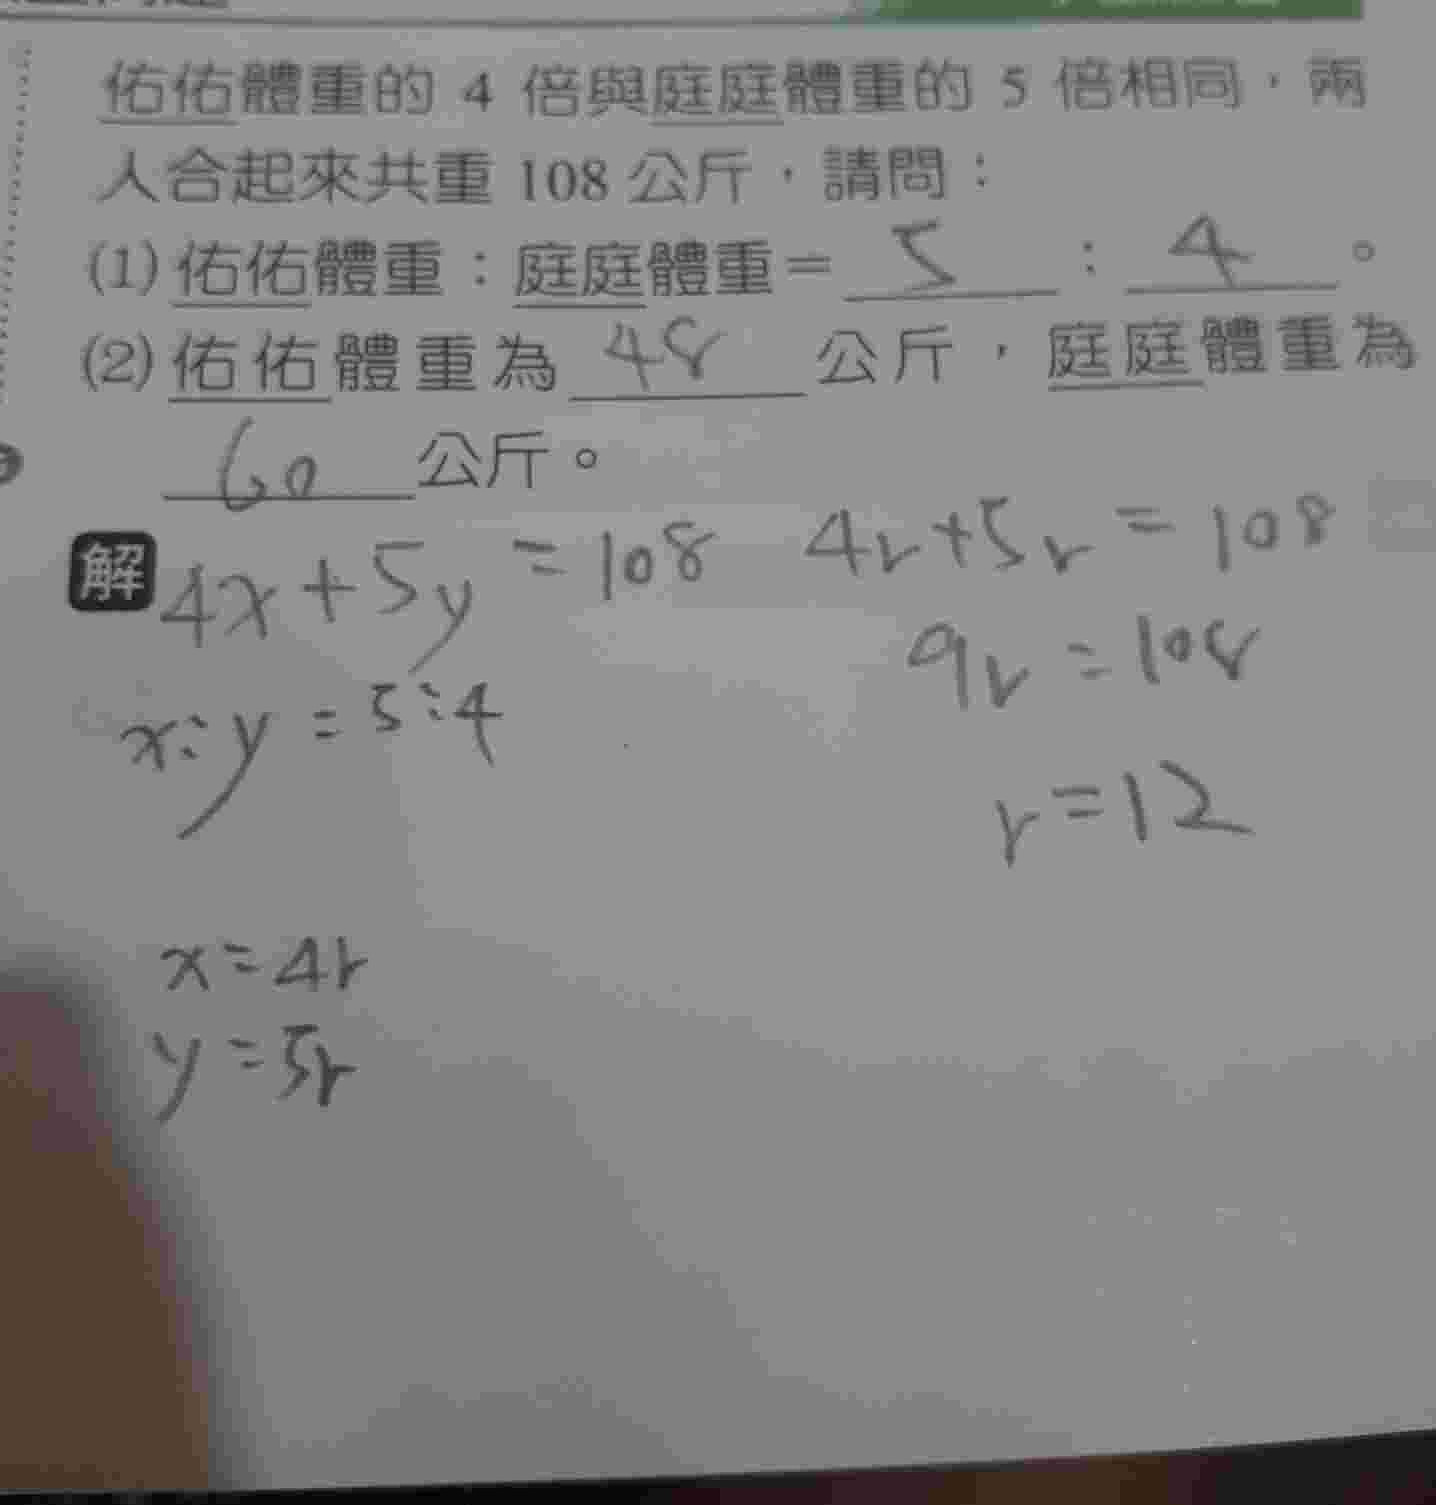 佑佑體重的 4 倍與庭庭體重的 5 倍相同，兩
人合起來共重 108 公斤，請問：
(1) 佑佑體重：庭庭體重＝ 5 ： 4 。
(2) 佑佑體重為 48 公斤，庭庭體重為
60 公斤。
解
4x+5y=108
4r+5r=108
9r=108
x:y=5:4
r=12
x=4r
y=5r